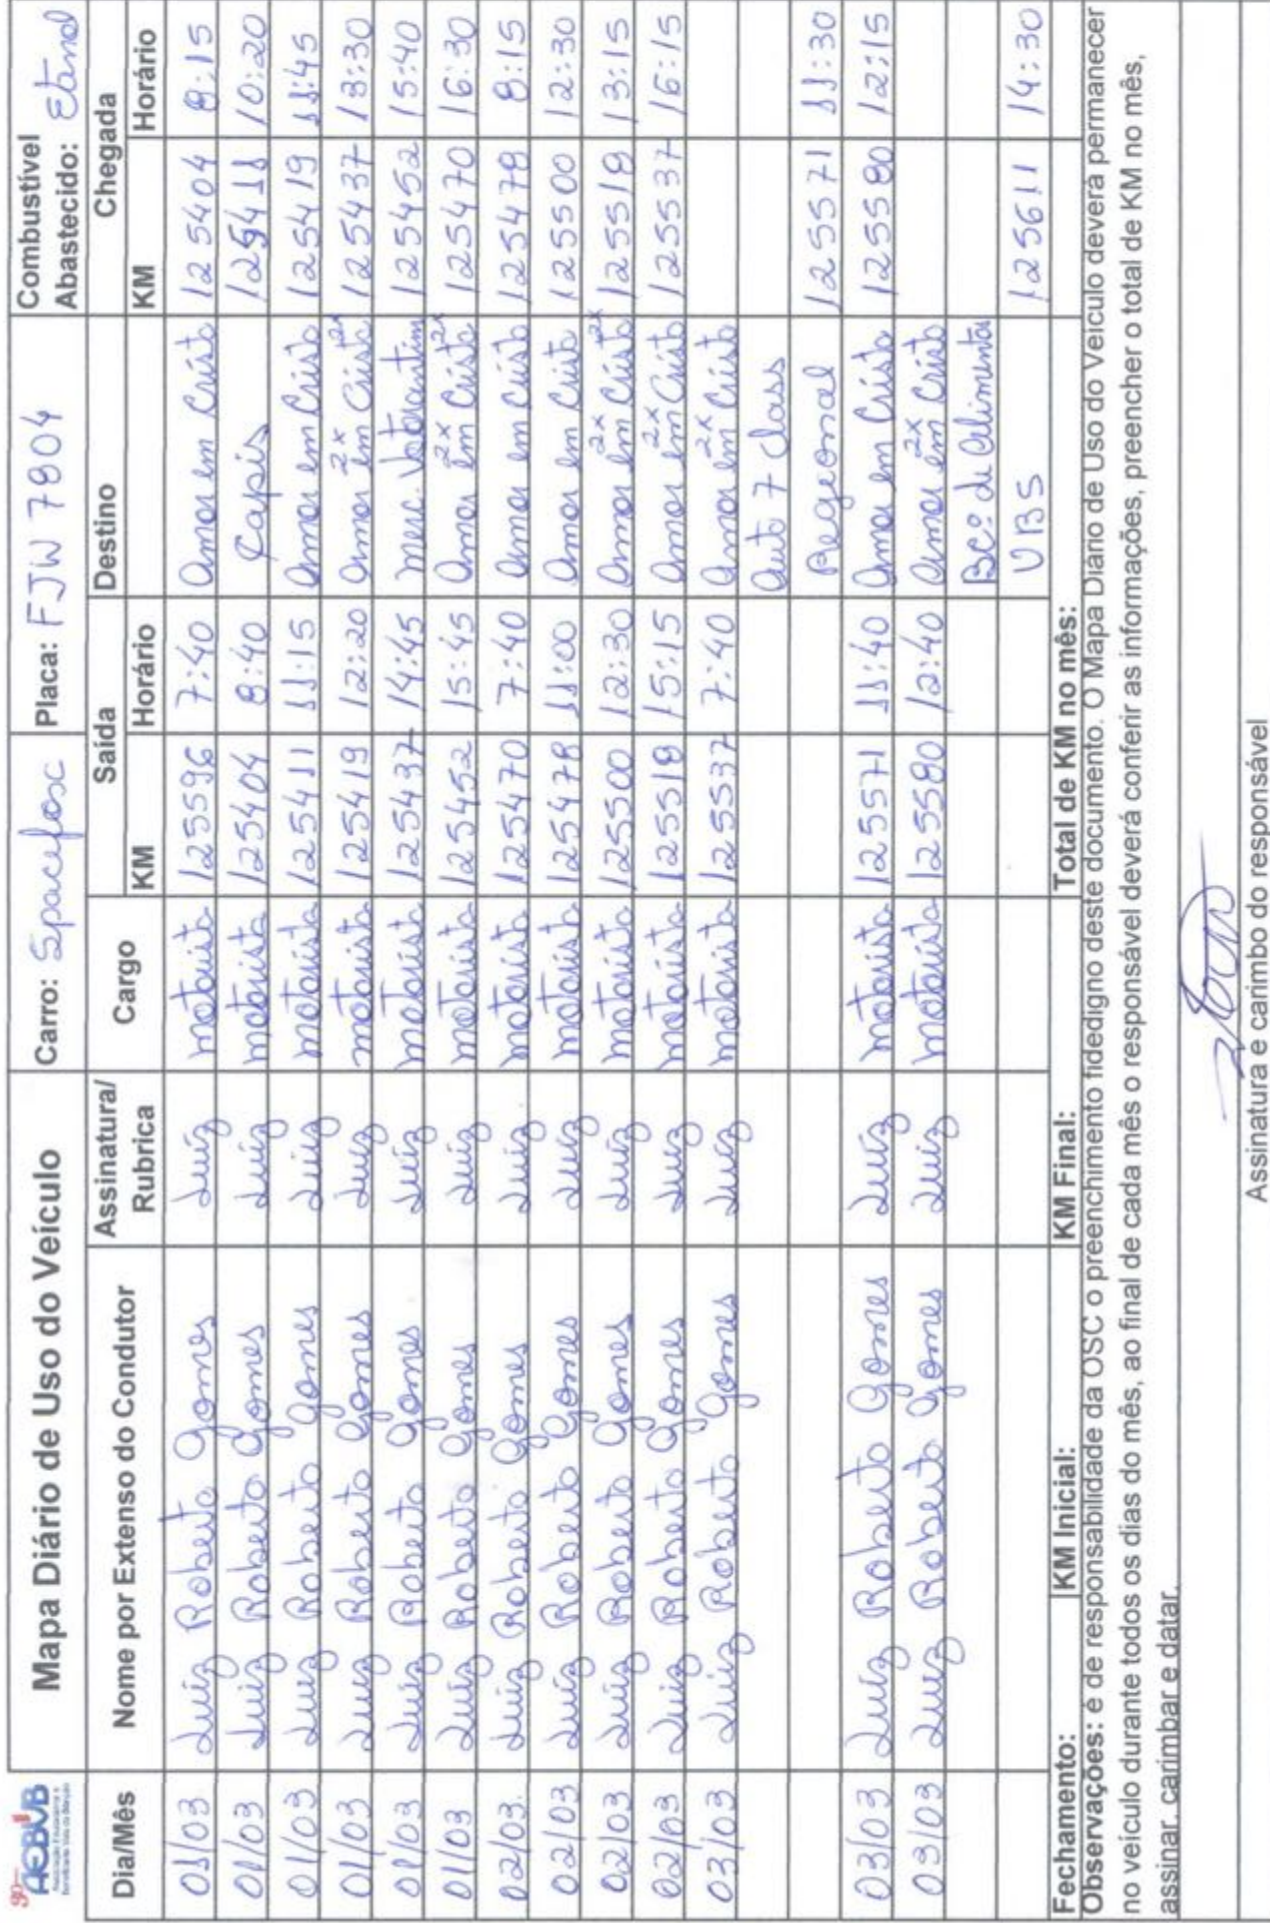 90 AEBVB
Associação Educacional e
Beneficente Vale da Bênção
Mapa Diário de Uso do Veículo Carro: Spacefosc Placa: FJW 7804 Combustível Abastecido: Etanol
Dia/Mês Nome por Extenso do Condutor Assinatura/ Rubrica Cargo Saída Destino Chegada
KM Horário KM Horário
01/03 Luiz Roberto Gomes Luiz motorista 125596 7:40 Amor em Cristo 125404 8:15
01/03 Luiz Roberto Gomes Luiz motorista 125404 8:40 Capis 125411 10:20
01/03 Luiz Roberto Gomes Luiz motorista 125411 11:15 Amor em Cristo 125419 11:45
01/03 Luiz Roberto Gomes Luiz motorista 125419 12:20 Amor em Cristo 2x 125437 13:30
01/03 Luiz Roberto Gomes Luiz motorista 125437 14:45 Merc. Votorantim 125452 15:40
01/03 Luiz Roberto Gomes Luiz motorista 125452 15:45 Amor em Cristo 2x 125470 16:30
02/03. Luiz Roberto Gomes Luiz motorista 125470 7:40 Amor em Cristo 125478 8:15
02/03 Luiz Roberto Gomes Luiz motorista 125478 11:00 Amor em Cristo 125500 12:30
02/03 Luiz Roberto Gomes Luiz motorista 125500 12:30 Amor em Cristo 2x 125518 13:15
02/03 Luiz Roberto Gomes Luiz motorista 125518 15:15 Amor em Cristo 2x 125537 16:15
03/03 Luiz Roberto Gomes Luiz motorista 125537 7:40 Amor em Cristo 2x
Auto 7 Class
Regional 125571 11:30
03/03 Luiz Roberto Gomes Luiz motorista 125571 11:40 Amor em Cristo 125580 12:15
03/03 Luiz Roberto Gomes Luiz motorista 125580 12:40 Amor em Cristo 2x
Bcº de Alimentos
UBS 125611 14:30
Fechamento: KM Inicial: KM Final: Total de KM no mês:
Observações: é de responsabilidade da OSC o preenchimento fidedigno deste documento. O Mapa Diário de Uso do Veículo deverá permanecer
no veículo durante todos os dias do mês, ao final de cada mês o responsável deverá conferir as informações, preencher o total de KM no mês,
assinar, carimbar e datar.
Assinatura e carimbo do responsável